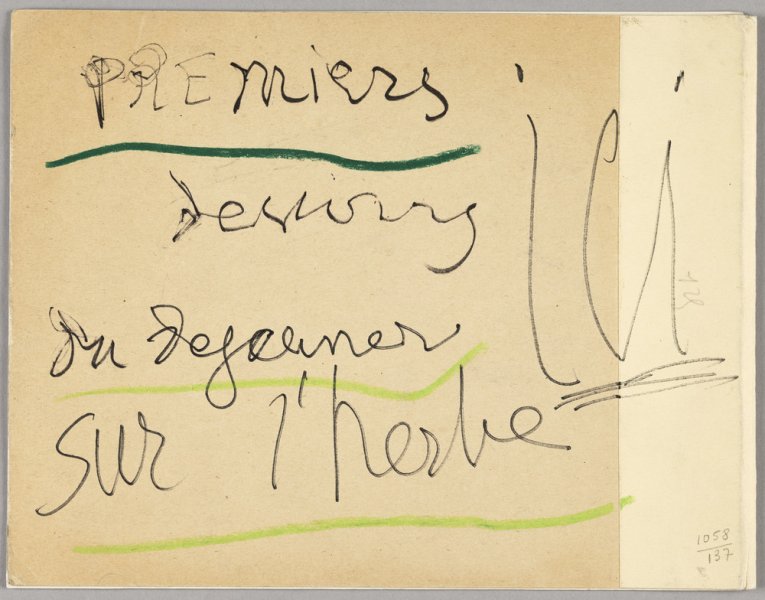 PREmiers
dessins
du dejeuner
sur l'herbe
ici
128
1058
137